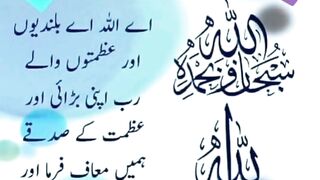 اے اللہ اے بلندیوں
اور عظمتوں والے
رب اپنی بڑائی اور
عظمت کے صدقے
ہمیں معاف فرما اور
سبحان اللہ وبحمدہ
اللہ